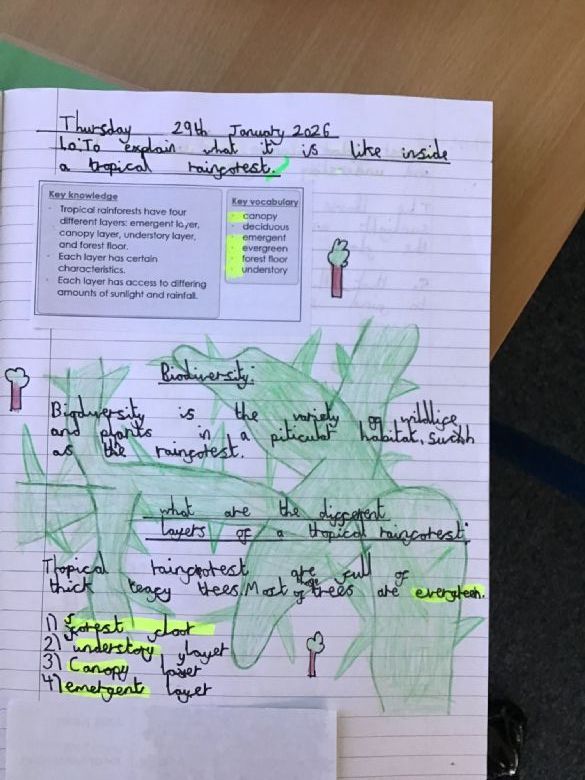 Thursday 29th January 2026
L.O: To explain what it is like inside
a tropical rainforest.
Key knowledge
· Tropical rainforests have four
different layers: emergent layer,
canopy layer, understory layer,
and forest floor.
· Each layer has certain
characteristics.
· Each layer has access to differing
amounts of sunlight and rainfall.
Key vocabulary
· canopy
· deciduous
· emergent
· evergreen
· forest floor
· understory
Biodiversity:
Biodiversity is the variety of wildlife
and plants in a piticular habitat, such
as the rainforest.
what are the different
layers of a tropical rainforest:
Tropical rainforest are full of
thick leafy trees. Most of these trees are evergreen.
1) forest floor
2) understory layer
3) Canopy layer
4) emergent layer